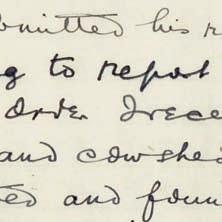 mitted his r
g to report
order I rece
and cowshe
ted and foun